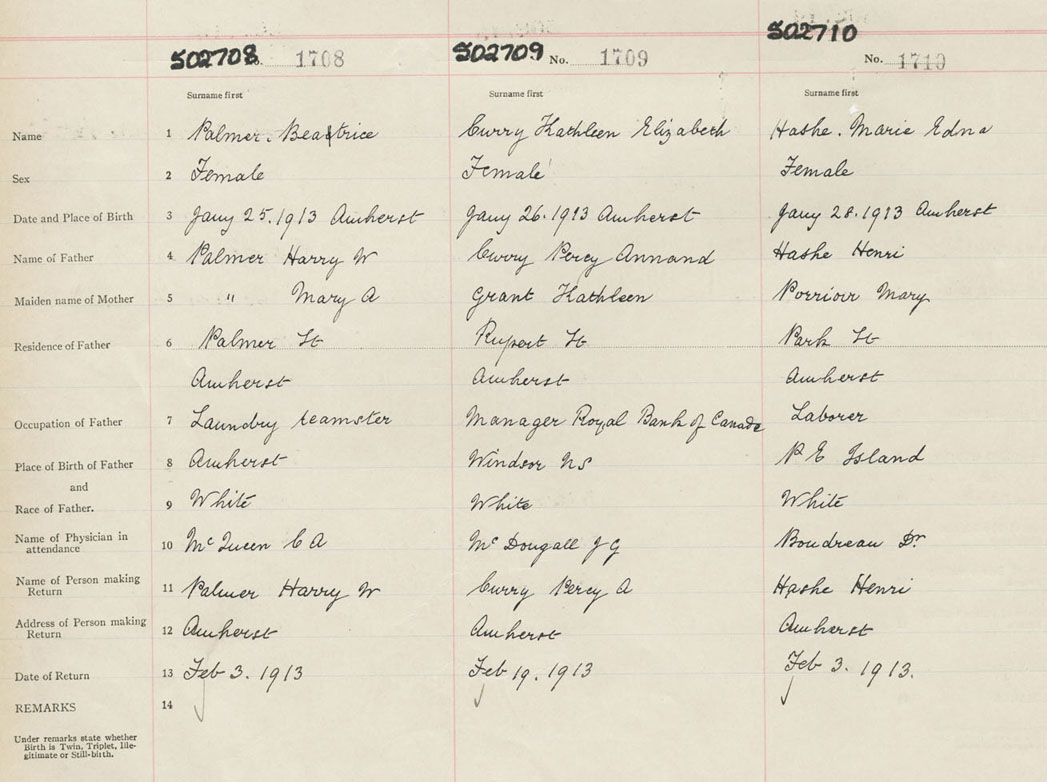 502708 No. 1708 502709 No. 1709 502710 No. 1710
Surname first Surname first Surname first
Name 1 Palmer. Beatrice Curry Kathleen Elizabeth Hashe. Marie Edna
Sex 2 Female Female Female
Date and Place of Birth 3 Jany 25.1913 Amherst Jany 26.1913 Amherst Jany 28.1913 Amherst
Name of Father 4 Palmer Harry W Curry Percy Annand Hashe Henri
Maiden name of Mother 5 " Mary A Grant Kathleen Mary
Residence of Father 6 Palmer St Rupert St Park St
Amherst Amherst Amherst
Occupation of Father 7 Laundry teamster Manager Royal Bank of Canada Laborer
Place of Birth of Father 8 Amherst Windsor NS P E Island
and
Race of Father. 9 White White White
Name of Physician in
attendance 10 McQueen C A McDougall J G Boudreau Dr
Name of Person making
Return 11 Palmer Harry W Curry Percy A Hashe Henri
Address of Person making
Return 12 Amherst Amherst Amherst
Date of Return 13 Feb 3. 1913 Feb 19. 1913 Feb 3. 1913.
REMARKS 14
Under remarks state whether
Birth is Twin, Triplet, Ille-
gitimate or Still-birth.